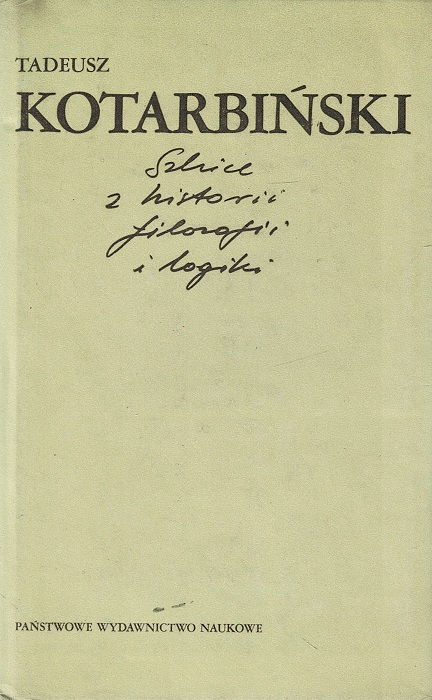 TADEUSZ
KOTARBIŃSKI
Szkice
z historii
filozofii
i logiki
PAŃSTWOWE WYDAWNICTWO NAUKOWE